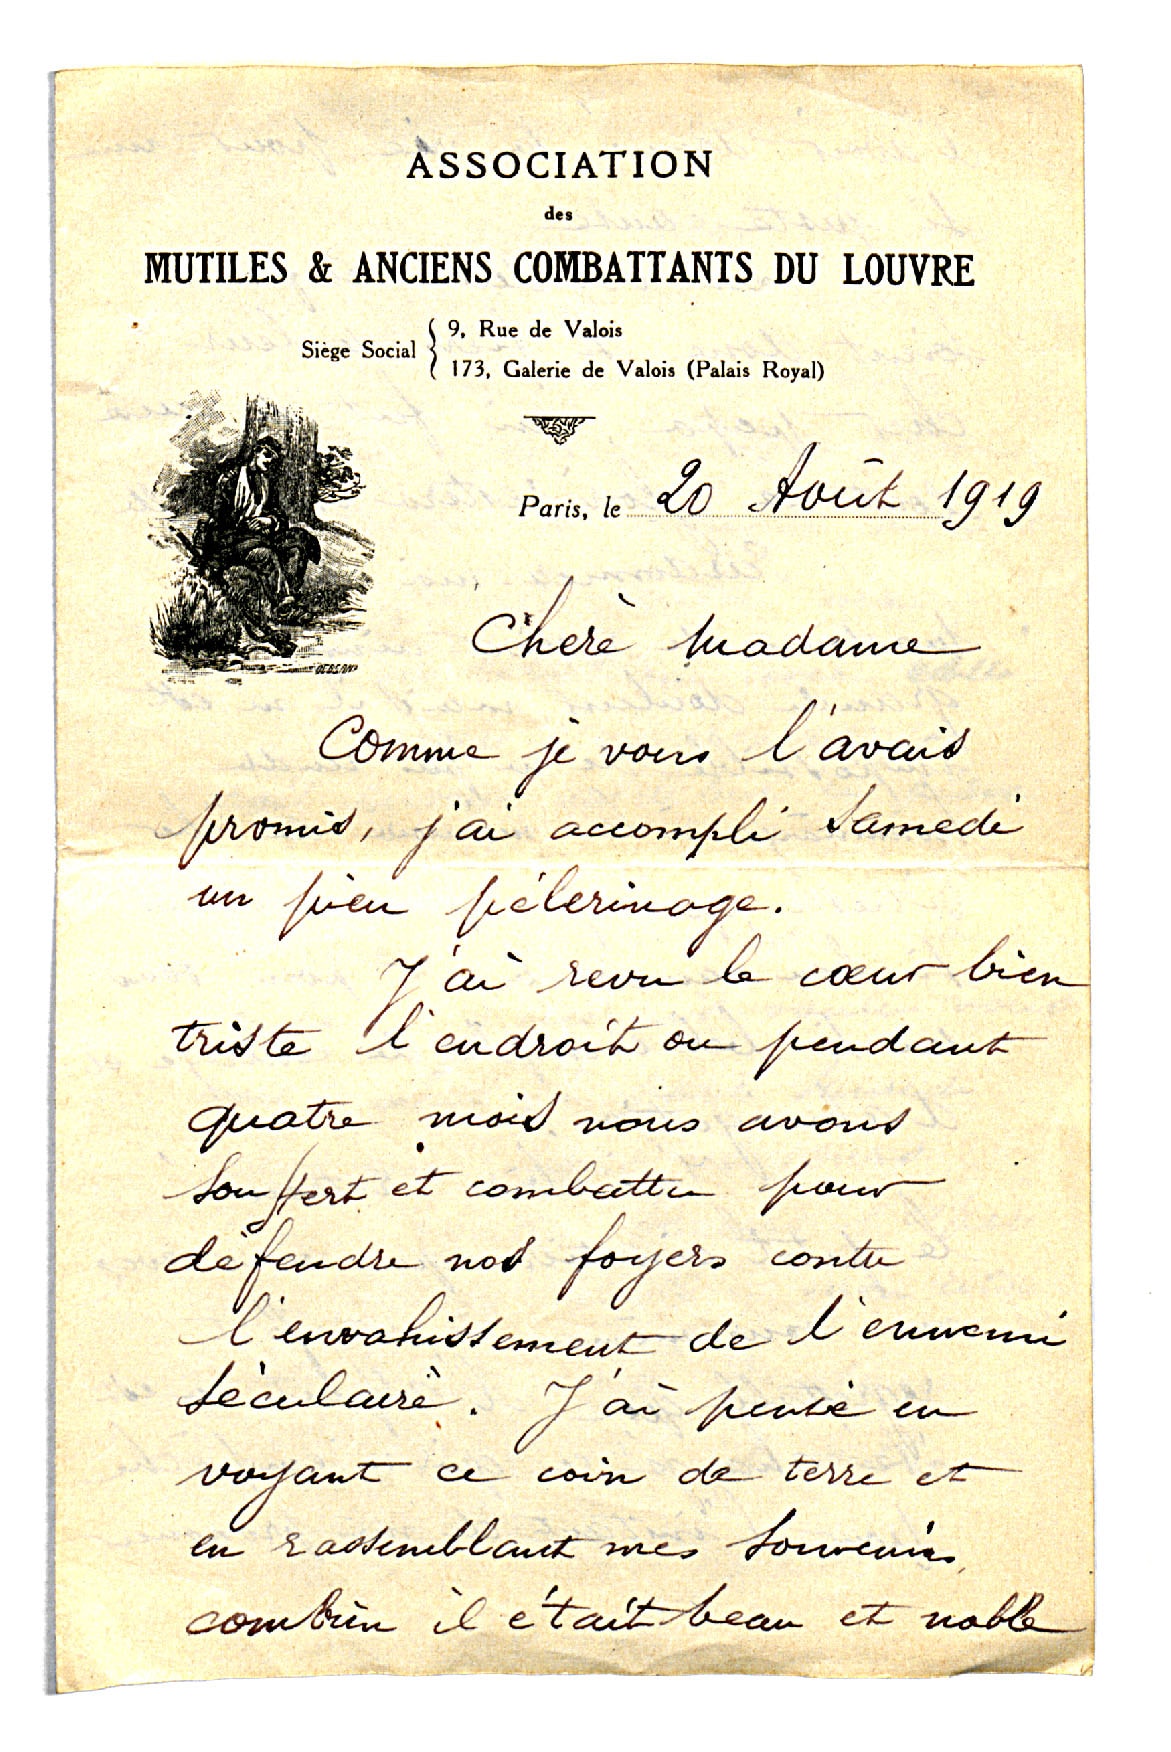 ASSOCIATION
des
MUTILES & ANCIENS COMBATTANTS DU LOUVRE
Siège Social { 9, Rue de Valois
173, Galerie de Valois (Palais Royal)
Paris, le 20 Août 1919
Chère Madame
Comme je vous l'avais
promis, j'ai accompli samedi
un pieu pélerinage.
J'ai revu le cœur bien
triste l'endroit ou pendant
quatre mois nous avons
souffert et combattu pour
défendre nos foyers contre
l'envahissement de l'ennemi
séculaire. J'ai pensé en
voyant ce coin de terre et
en rassemblant mes souvenirs,
combien il était beau et noble